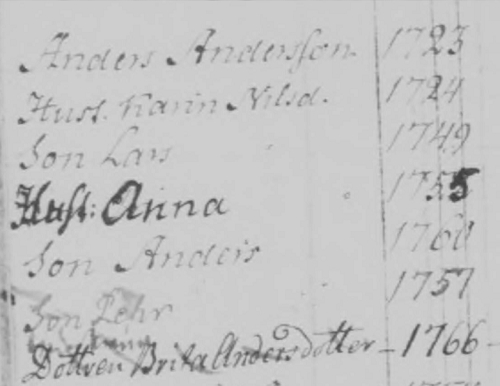 Anders Andersson 1723
Hust. Karin Nilsd. 1724
Son Lars 1749
Hust: Anna 1755
Son Anders 1760
Son Pehr 1757
Dottren Brita Andersdotter - 1766 -